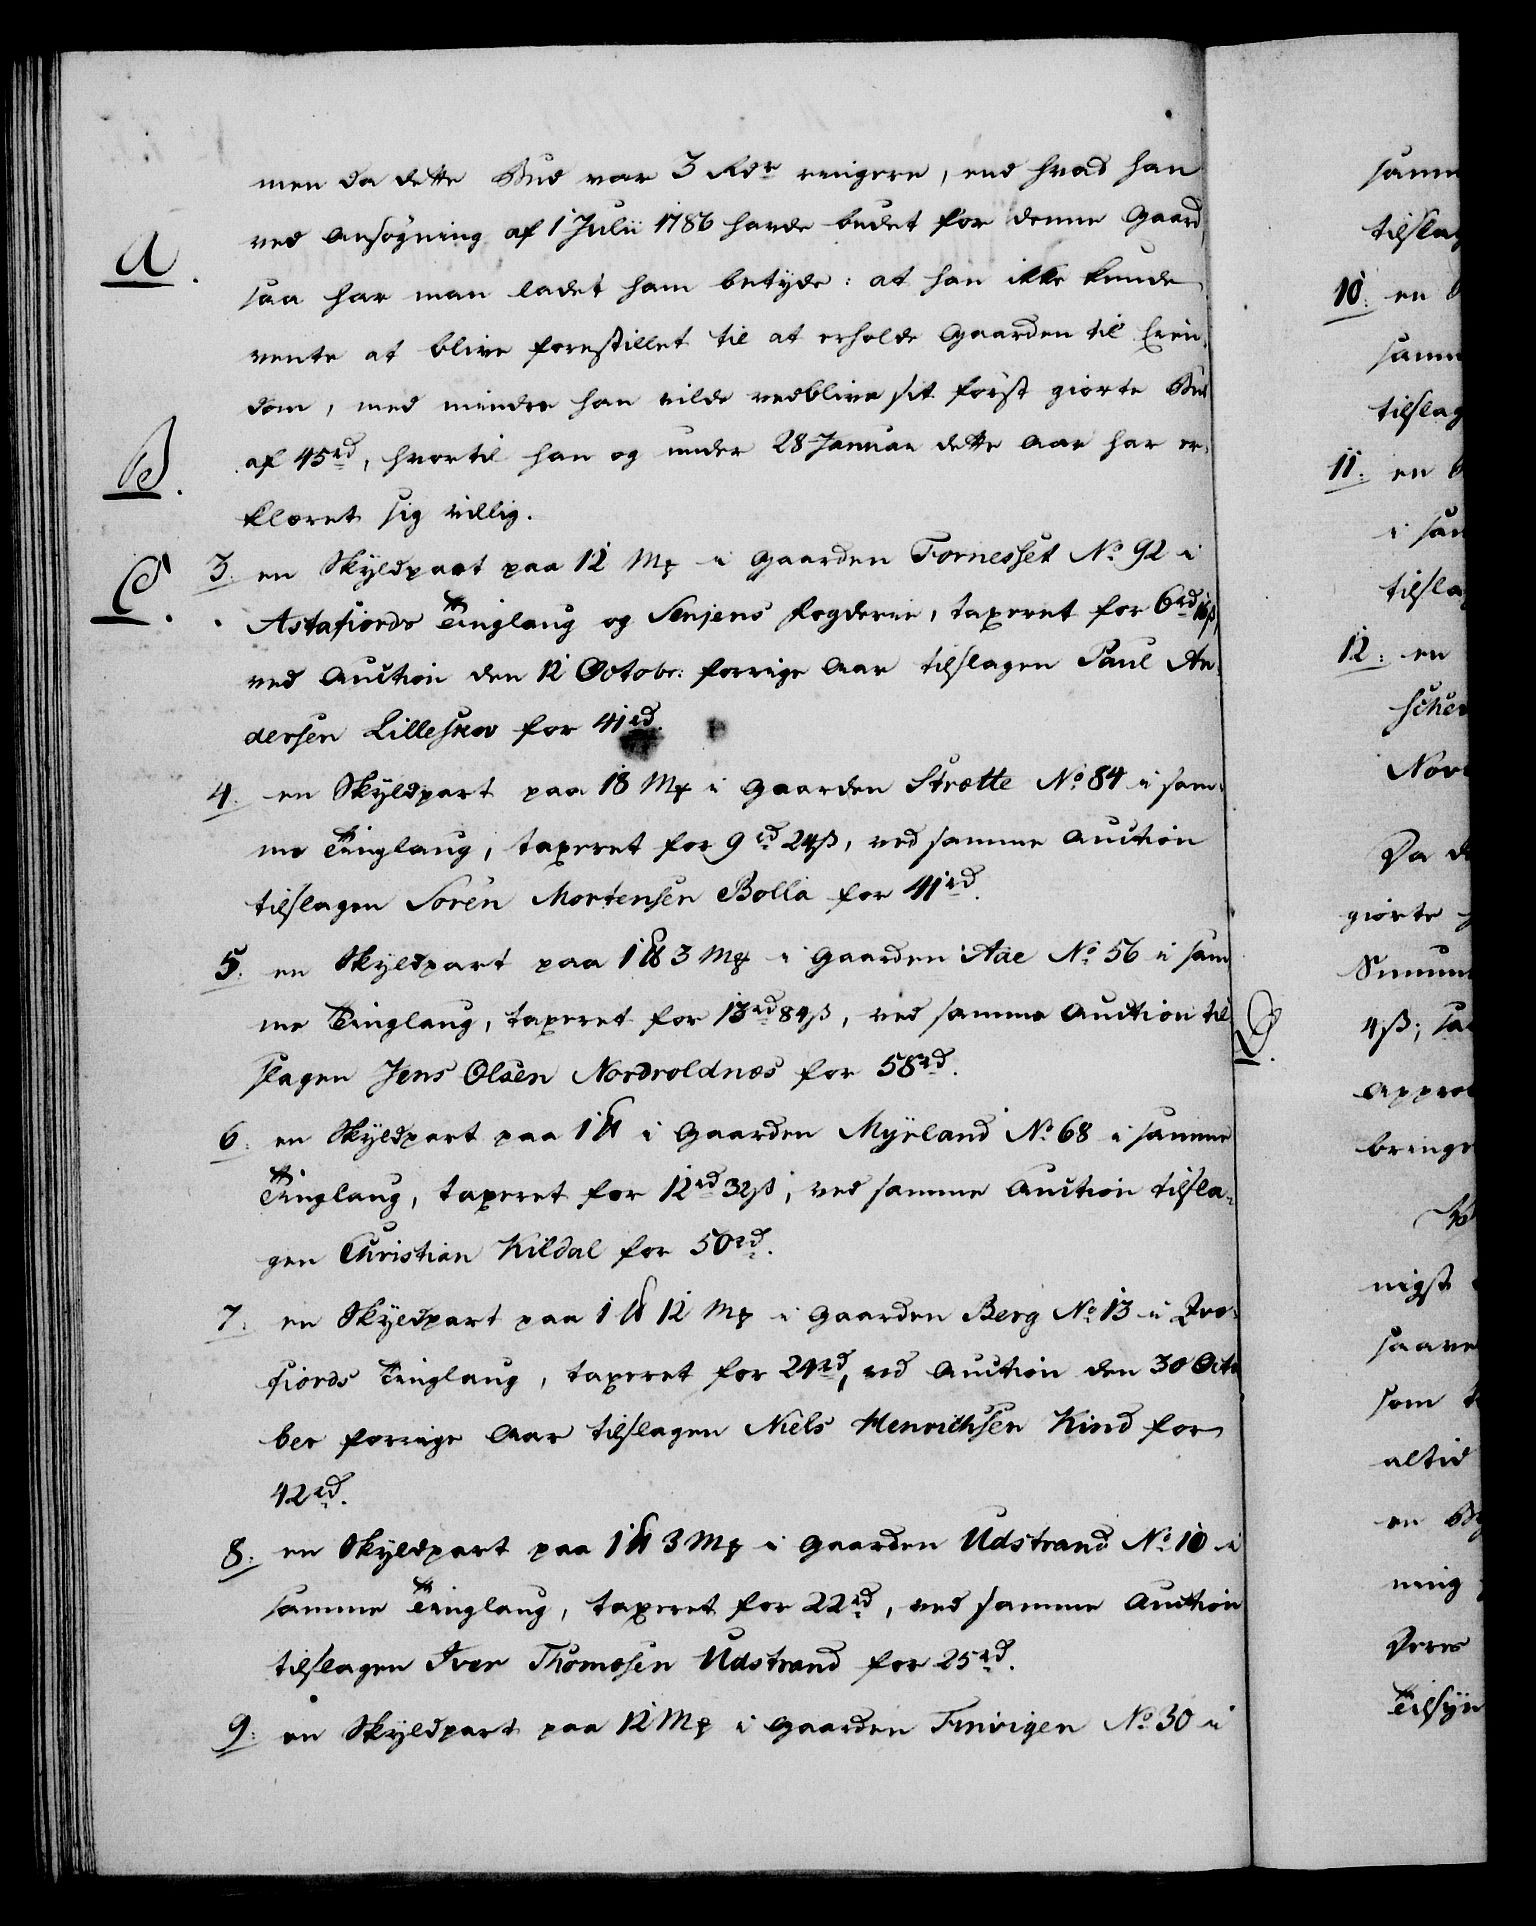 men da dette Bud var 3 Rdr ringere, end hvad han
A.
ved Ansøgning af 1 Julii 1786 havde budet for denne Gaard,
saa har man ladet ham betyde: at han ikke kunde
vente at blive forestillet til at erholde Gaarden til Eien-
dom, med mindre han vilde vedblive sit først giorte Bud
B.
af 45rd, hvortil han og under 28 Januar dette Aar har er-
klæret sig villig.
C.
3. en Skyldpart paa 12 Mk i Gaarden Fornesset No 92 i
Astafiords Tinglaug og Senjens Fogderie, taxeret for 6rd 16ß,
ved Auction den 12 Octobr: forrige Aar tilslagen Paul An-
dersen Lilleskov for 41rd.
4. en Skyldpart paa 18 Mk i Gaarden Strætte No 84 i sam-
me Tinglaug, taxeret for 9rd 24ß, ved samme Auction
tilslagen Søren Mortensen Bolla for 41rd.
5. en Skyldpart paa 1 ℔ 3 Mk i Gaarden Aae No 56 i sam
me Tinglaug, taxeret for 13rd 84ß, ved samme Auction til
slagen Jens Olsen Nordroldnæs for 58rd.
6. en Skyldpart paa 1 ℔ i Gaarden Myrland No 68 i samme
Tinglaug, taxeret for 12rd 32ß, ved samme Auction tilsla-
gen Christian Kildal for 50rd.
7. en Skyldpart paa 1 ℔ 12 Mk i Gaarden Berg No 13 i Qvæ-
fiords Tinglaug, taxeret for 24rd, ved Auction den 30 Octo
ber forrige Aar tilslagen Niels Henrichsen Kind for
42rd.
8. en Skyldpart paa 1 ℔ 3 Mk i Gaarden Udstrand No 10 i
samme Tinglaug, taxeret for 22rd, ved samme Auction
tilslagen Iver Thomesen Udstrand for 25rd.
9. en Skyldpart paa 12 Mk i Gaarden Finvigen No 30 i
samm
tilslag
10. en
samm
tilslag
11. en
i sam
tilslag
12. en
Da
giorte
D.
4ß, saa
bringe
nigst
saavel
som
altid
en
ning
Deres
Tilsyn